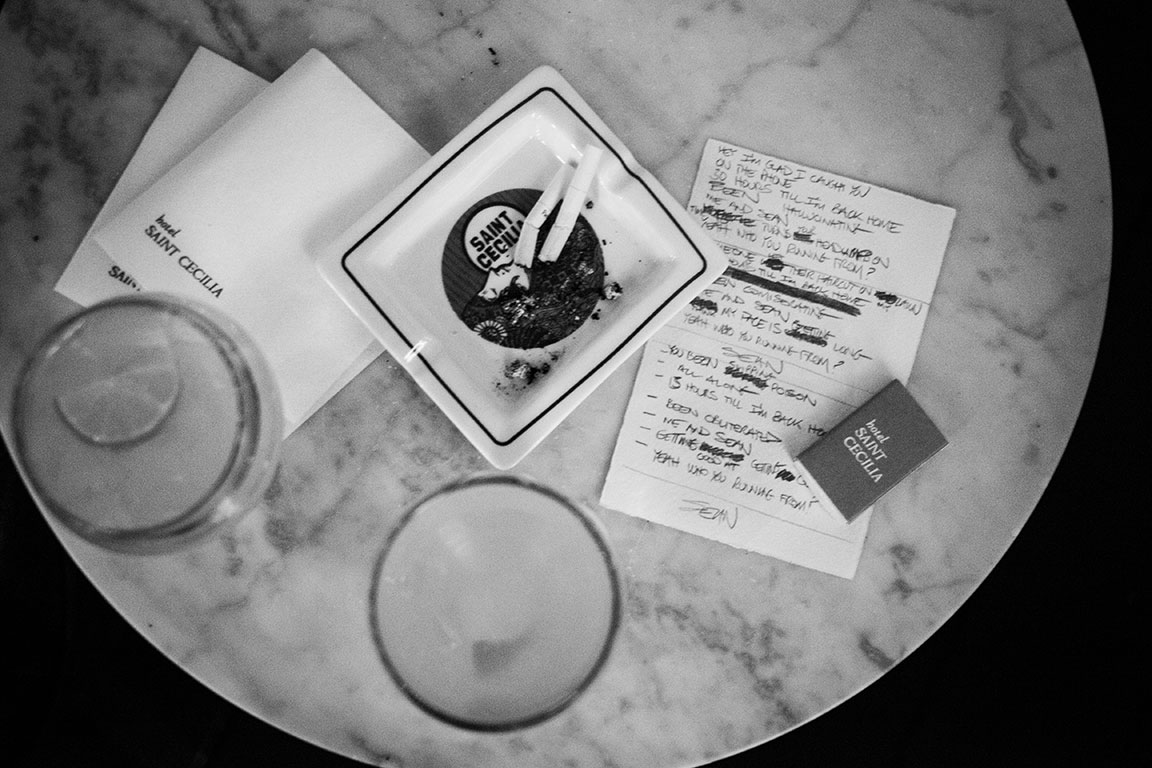 hotel
SAINT CECILIA
SAINT
CECILIA
HEY I'M GLAD I CAUGHT YOU
ON THE PHONE
30 HOURS TILL I'M BACK HOME
BEEN HALLUCINATING
ME AND SEAN
TURNS HEAD ON
YEAH WHO YOU RUNNING FROM?
HAIRCUT ON
HOURS TILL I'M BACK HOME
BEEN COMISERATING
ME AND SEAN
MY FACE IS GETTING LONG
YEAH WHO YOU RUNNING FROM?
SEAN
- YOU BEEN SIPPING POISON
- ALL ALONE
- 13 HOURS TILL I'M BACK
- BEEN OBLITERATED
- ME AND SEAN
- GETTING GOOD AT GETTING
YEAH WHO YOU RUNNING FROM?
SEAN
hotel
SAINT
CECILIA